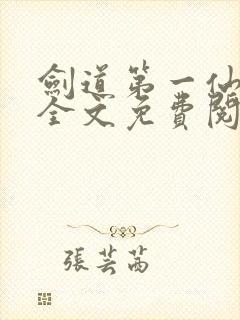 劍道第一仙
全文免費閱
張芸茜